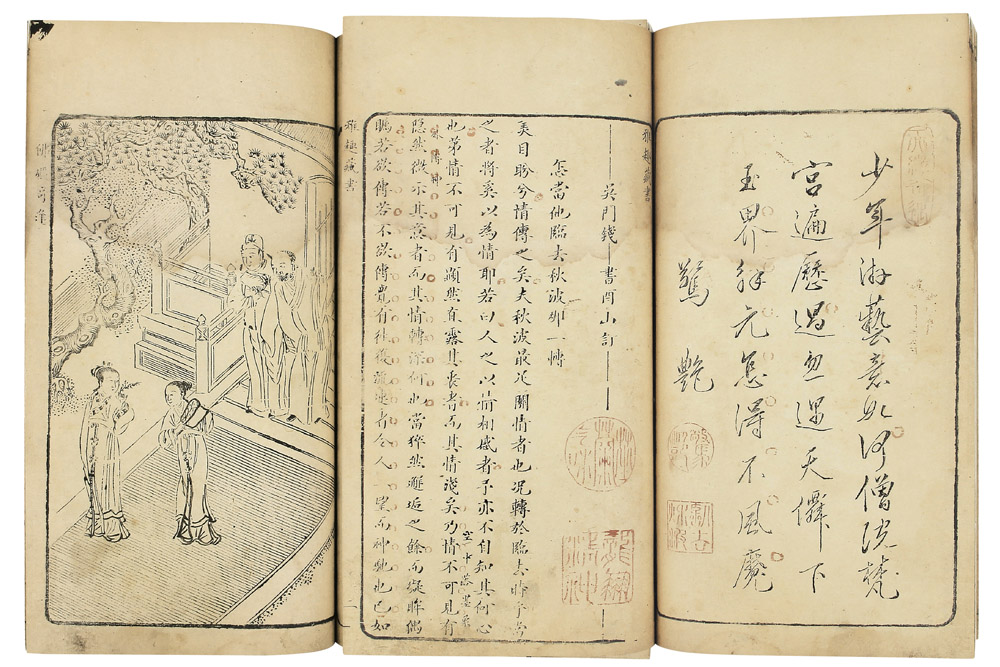 少年游藝意如何僧院梵
宮遍歷過忽遇天僊下
玉界解元怎得不風魔
驚艷
雅趣藏書
吳門錢書酉山訂
怎當他臨去秋波那一轉
美目盼兮情傳之矣夫秋波最足關情者也况轉於臨去時乎當
之者將奚以為情耶若曰人之以情相感者予亦不自知其何心
也第情不可見有顯然直露其衷者而其情淺矣乃情不可見有
空中落墨
隱然微示其意者而其情轉深何也當猝然邂逅之餘而凝眸偶
矚若欲傳若不欲傳覺有往復流連者令人一望而神馳也已如
雅趣藏書
二